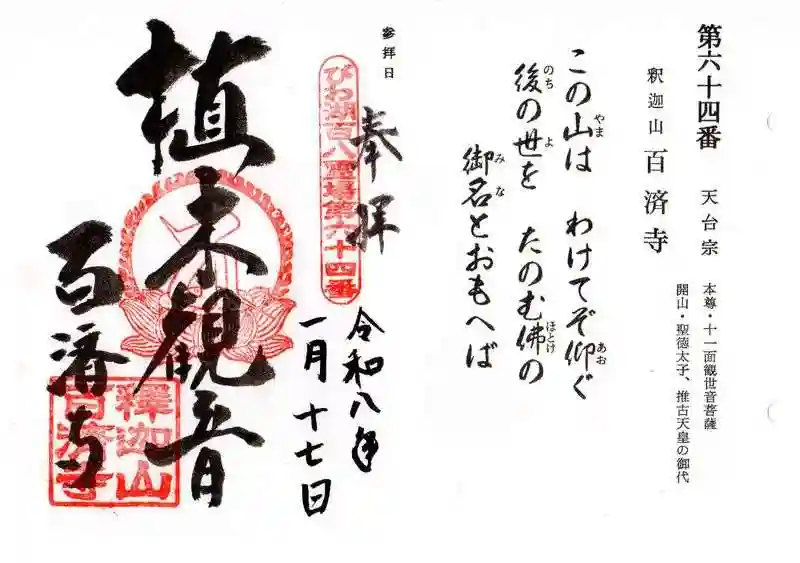 第六十四番 天台宗
本尊・十一面観世音菩薩
開山・聖徳太子、推古天皇の御代
釈迦山 百済寺
この山は わけてぞ仰ぐ
やま
あお
後の世を たのむ佛の
のち
よ
ほとけ
御名とおもへば
みな
参拝日
奉拝
びわ湖百八霊場第六十四番
令和八年
一月十七日
植木観音
百済寺
釋迦山
百済寺